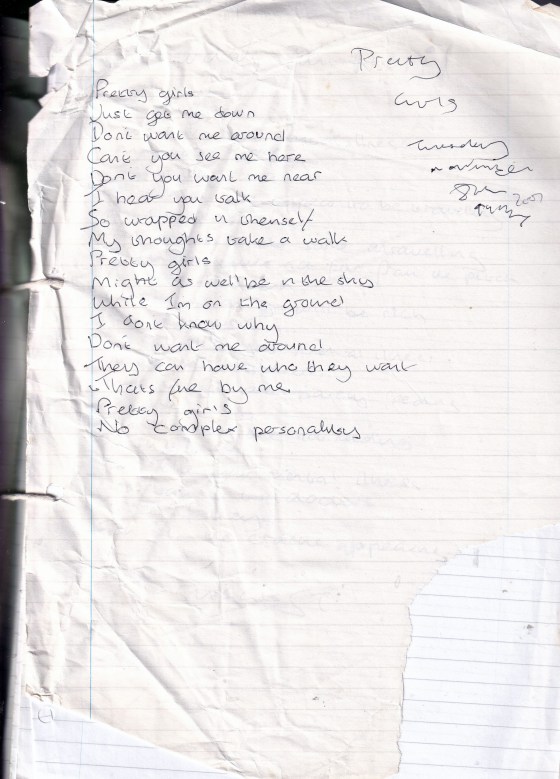 Pretty
Girls
Tuesday
November
2001
Pretty girls
Just get me down
Dont want me around
Cant you see me here
Dont you want me near
I hear you talk
So wrapped n themself
My thoughts take a walk
Pretty girls
Might as well be n the sky
While Im on the ground
I dont know why
Dont want me around
They can have who they want
Thats fine by me
Pretty girls
No complex personalitys